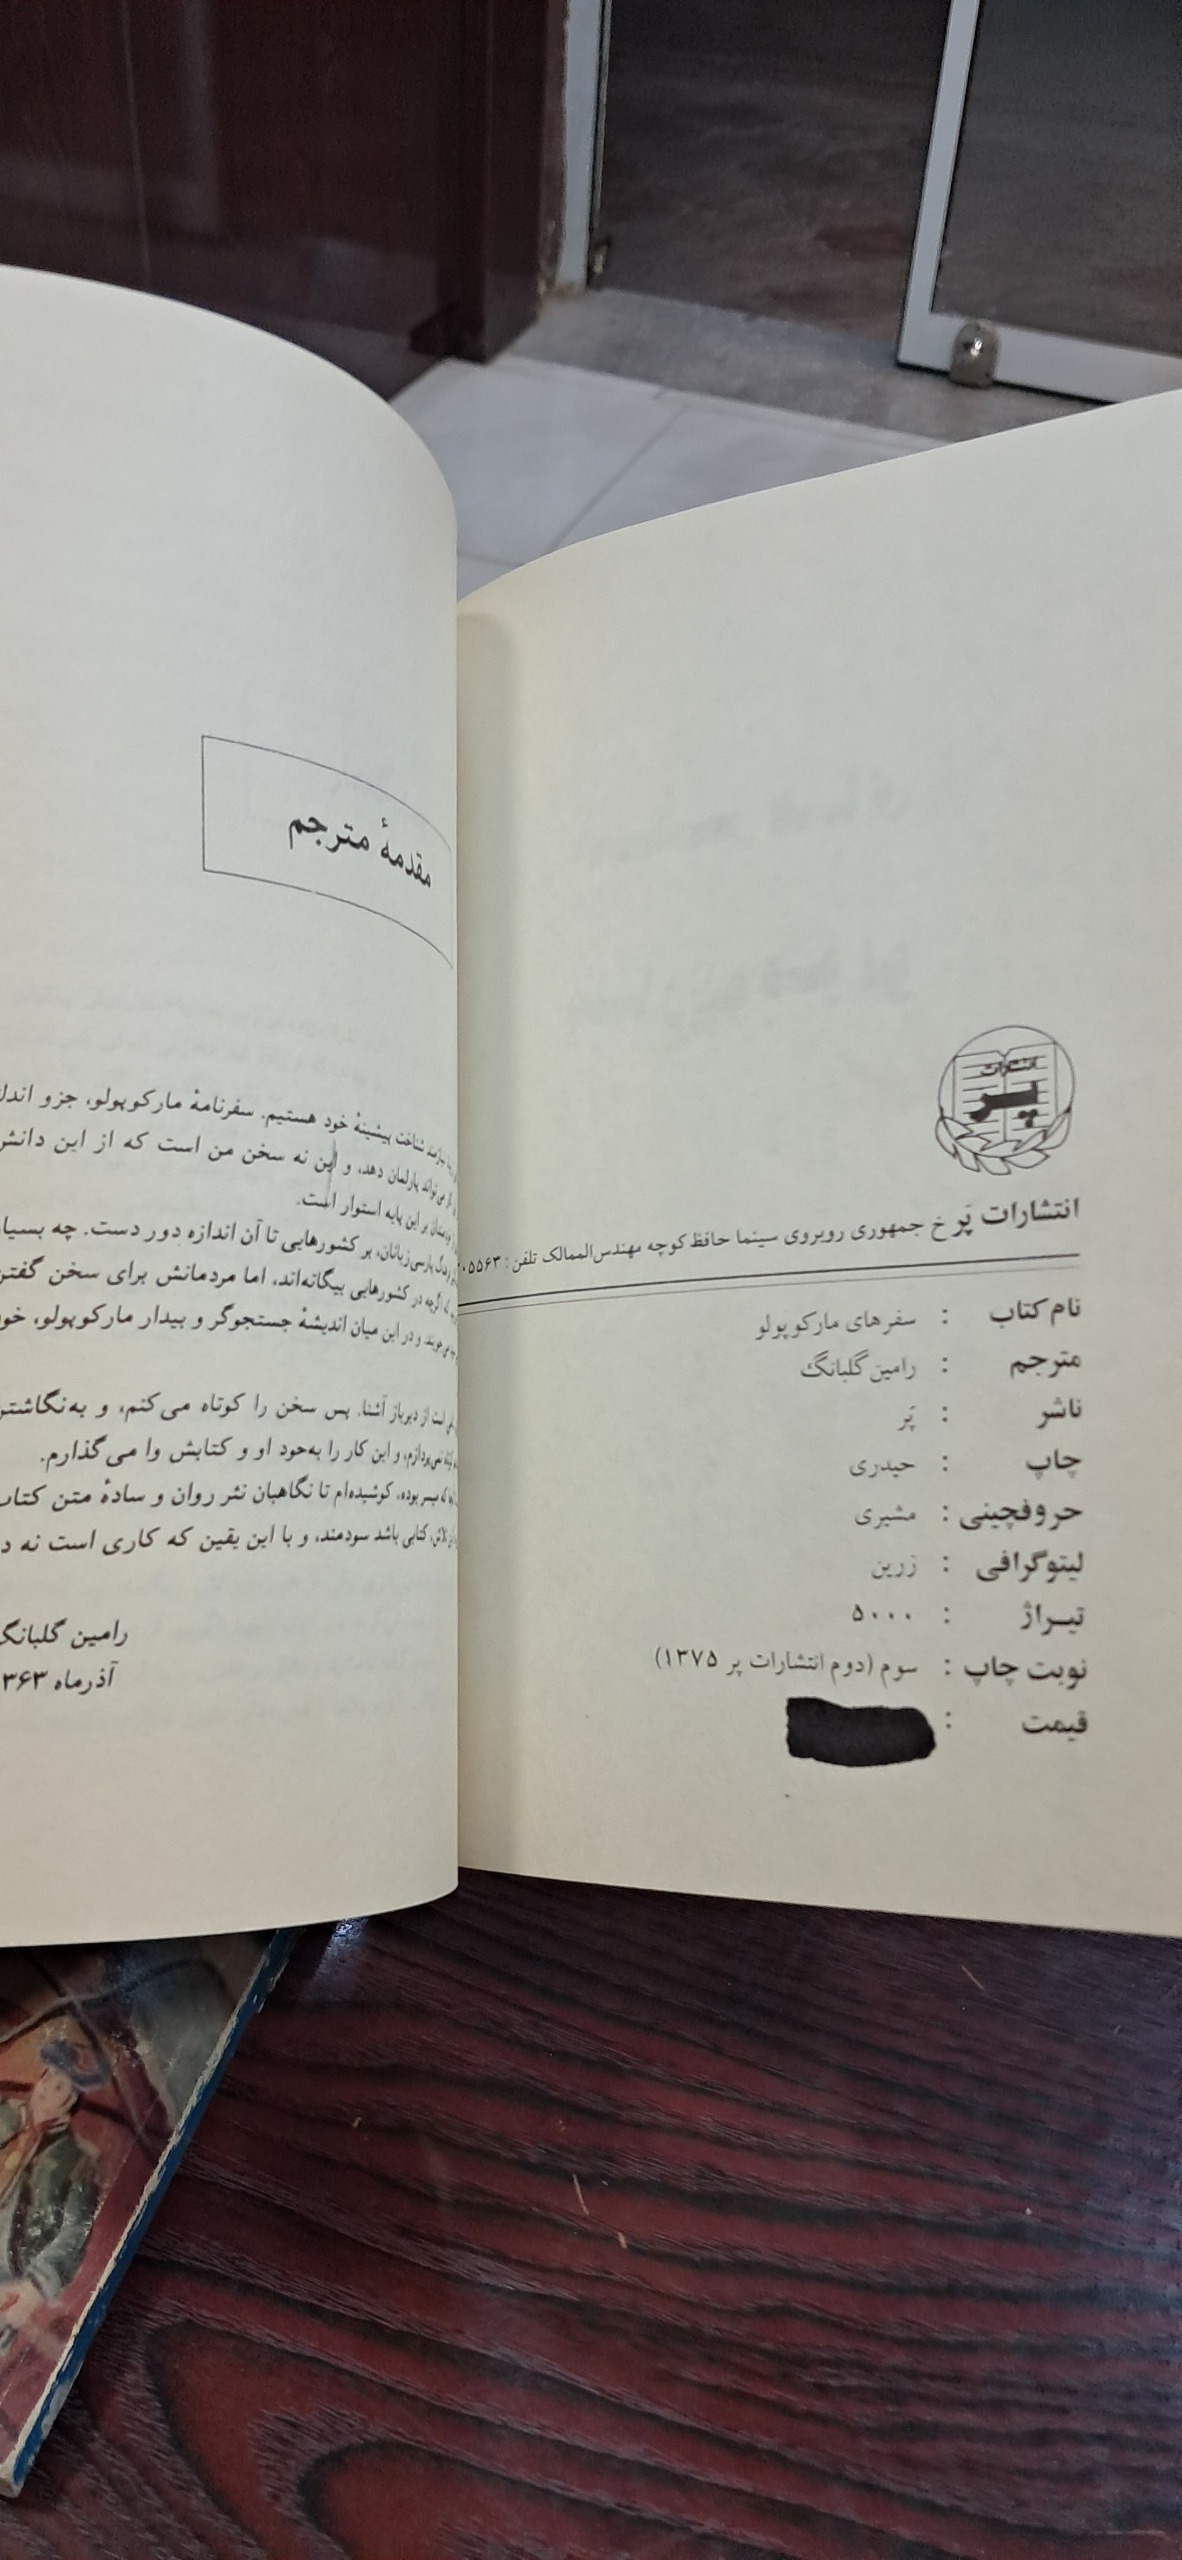 انتشارات
پر
انتشارات پَر خ جمهوری روبروی سینما حافظ کوچه مهندس‌الممالک تلفن :
نام کتاب : سفرهای مارکوپولو
مترجم : رامین گلبانگ
ناشر : پَر
چاپ : حیدری
حروفچینی : مشیری
لیتوگرافی : زرین
تیـراژ : ۵۰۰۰
نوبت چاپ : سوم (دوم انتشارات پر ۱۳۷۵)
قیمت :
مقدمهٔ مترجم
شناخت پیشینهٔ خود هستیم. سفرنامهٔ مارکوپولو، جزو
دهد، و این نه سخن من است که از این دانش
بر این پایه استوار است.
پارسی‌زبانان، بر کشورهایی تا آن اندازه دور دست. چه بسیار
اگرچه در کشورهایی بیگانه‌اند، اما مردمانش برای سخن گفتن
و در این میان اندیشهٔ جستجوگر و بیدار مارکوپولو، خود
است از دیرباز آشنا. پس سخن را کوتاه می‌کنم، و به‌نگاشتن
و این کار را به‌خود او و کتابش وا می‌گذارم.
که میسر بوده، کوشیده‌ام تا نگاهبان نثر روان و سادهٔ متن کتاب
تلاش، کتابی باشد سودمند، و با این یقین که کاری است نه
رامین گلبانگ
آذرماه